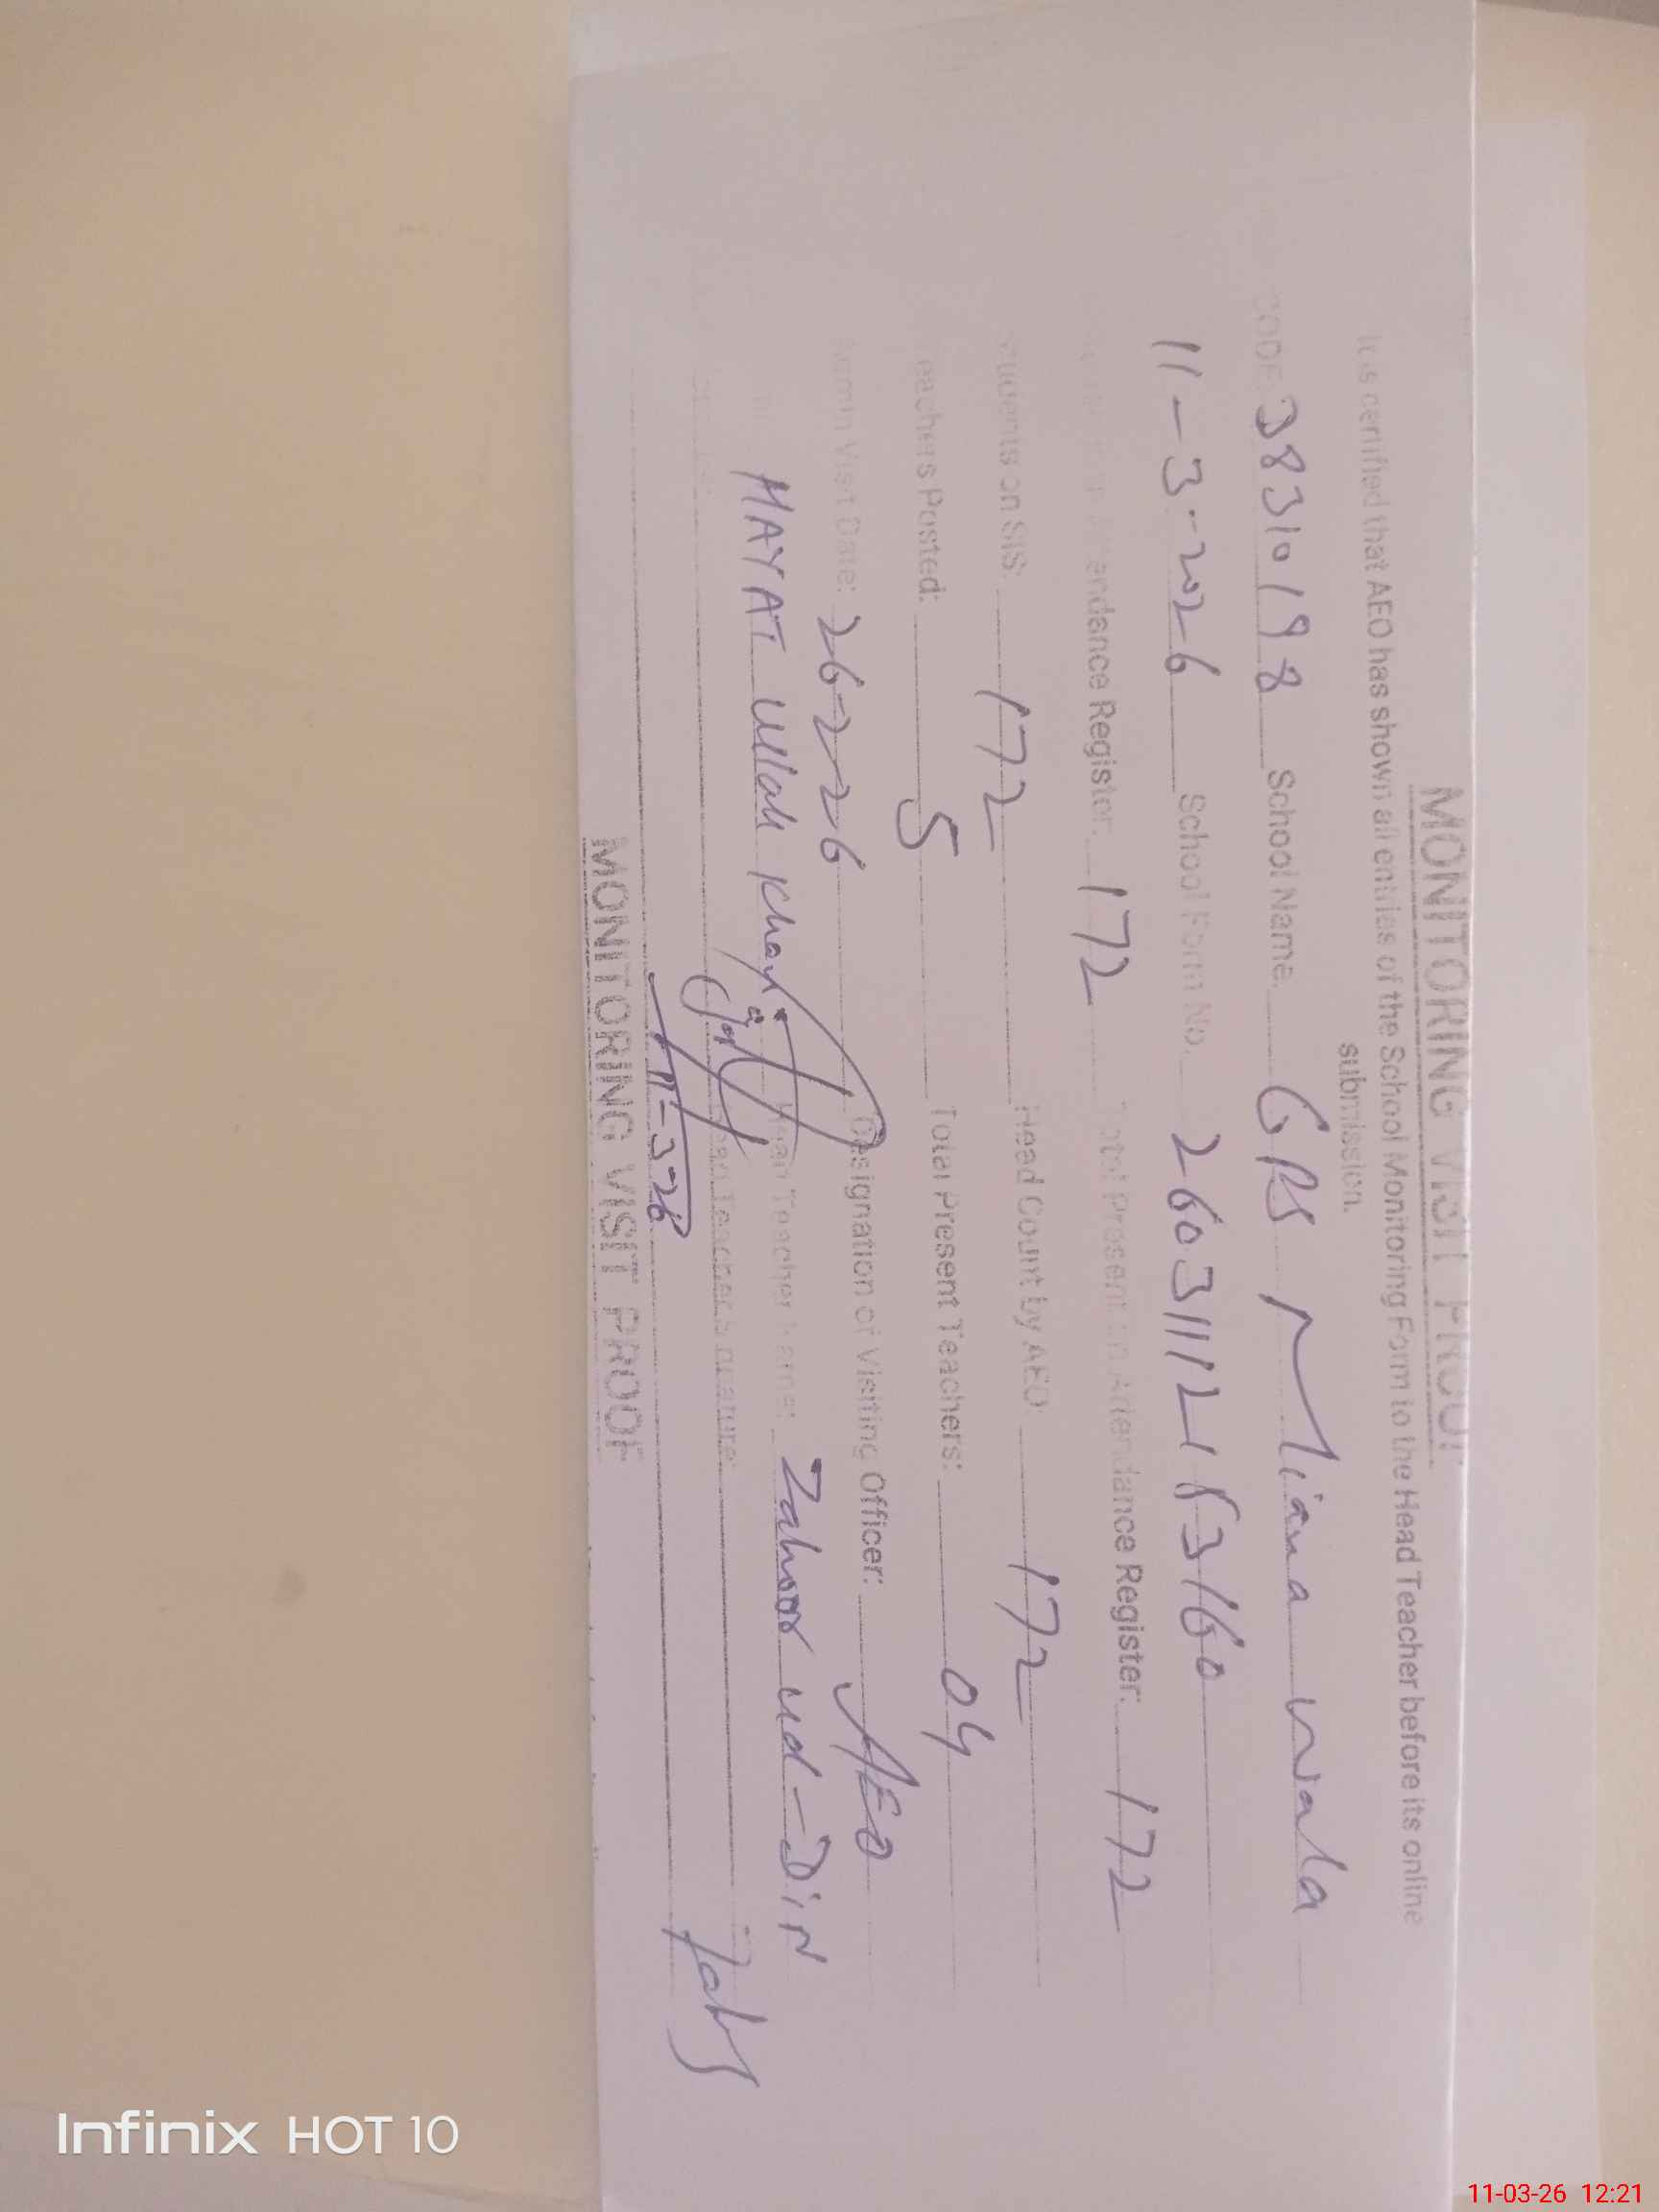 MONITORING VISIT PROOF
It is certified that AEO has shown all entries of the School Monitoring Form to the Head Teacher before its online
submission.
CODE 38310198 School Name GPS Miana wala
11-3-2026 School Form No. 260311121 63160
Attendance Register: 172 Total Present on Attendance Register: 172
Students on SIS: 172 Head Count by AEO: 172
Teachers Posted: 5 Total Present Teachers: 04
Admin Visit Date: 26-2-26 Designation of Visiting Officer: AEO
HAYAT Ullah Khan Head Teacher Name: Zahoor ud-Din
Head Teacher Signature:
11-3-26
MONITORING VISIT PROOF
Infinix HOT 10
11-03-26 12:21